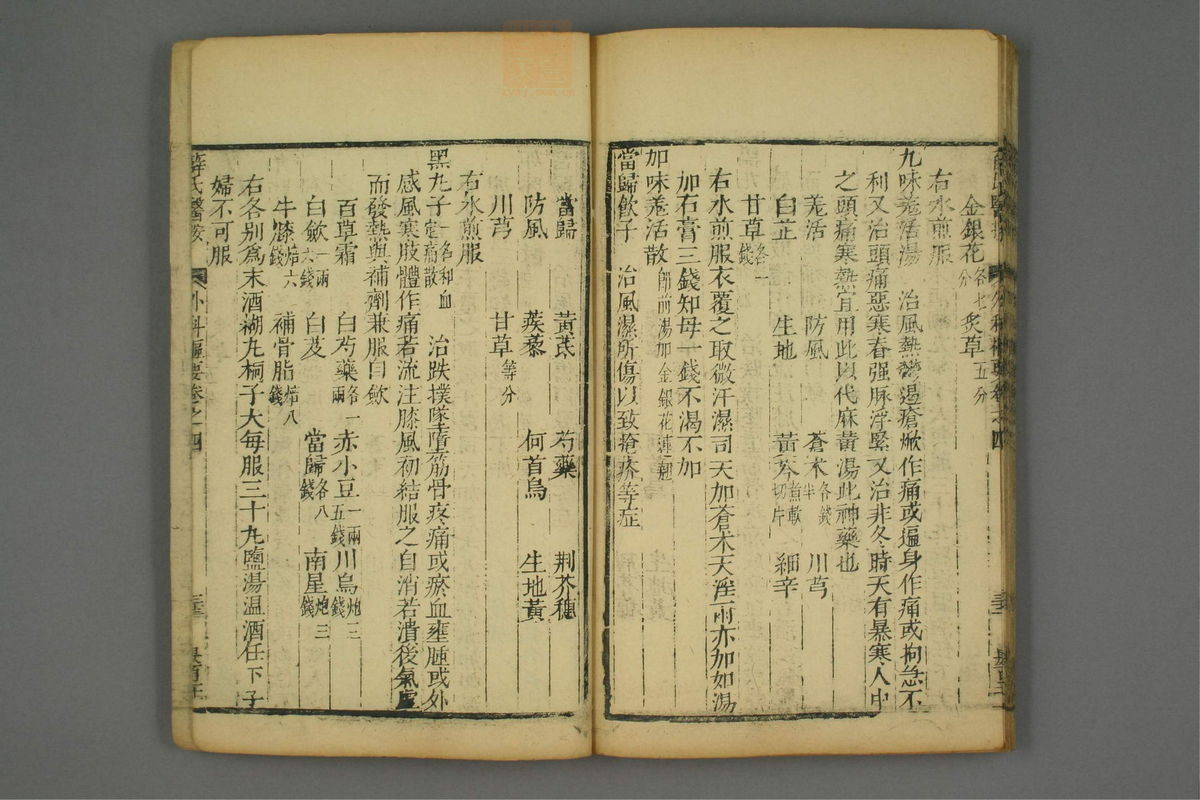 金銀花各七分 炙草五分
右水煎服
九味羗活湯 治風熱鬱遏瘡掀作痛或遍身作痛或拘急不
利又治頭痛惡寒春强脉浮緊又治非冬時天有暴寒人中
之頭痛寒熱宜用此以代麻黃湯此神藥也
羗活 防風 蒼术各錢半 川芎
白芷 生地 黃芩煮軟切片 細辛
甘草各一錢
右水煎服衣覆之取微汗濕司天加蒼术天淫雨亦加如湯
加石膏三錢知母一錢不渴不加
加味羗活散 卽前湯加金銀花連翹
當歸飲子 治風濕所傷以致瘡疥等症
當歸 黃芪 芍藥 荆芥穗
防風 蒺藜 何首烏 生地黃
川芎 甘草等分
右水煎服
黑丸子一名和血定痛散 治跌撲墜墮筋骨疼痛或瘀血壅腫或外
感風寒肢體作痛若流注膝風初結服之自消若潰後氣虛
而發熱與補劑兼服自斂
百草霜 白芍藥各一兩 赤小豆一兩五錢 川烏炮三錢
白斂一兩六錢 白芨 當歸各八錢 南星炮三錢
牛膝焙六錢 補骨脂焙八錢
右各别爲末酒糊丸桐子大每服三十丸鹽湯温酒任下子
婦不可服
薛氏醫按 外科樞要卷之四